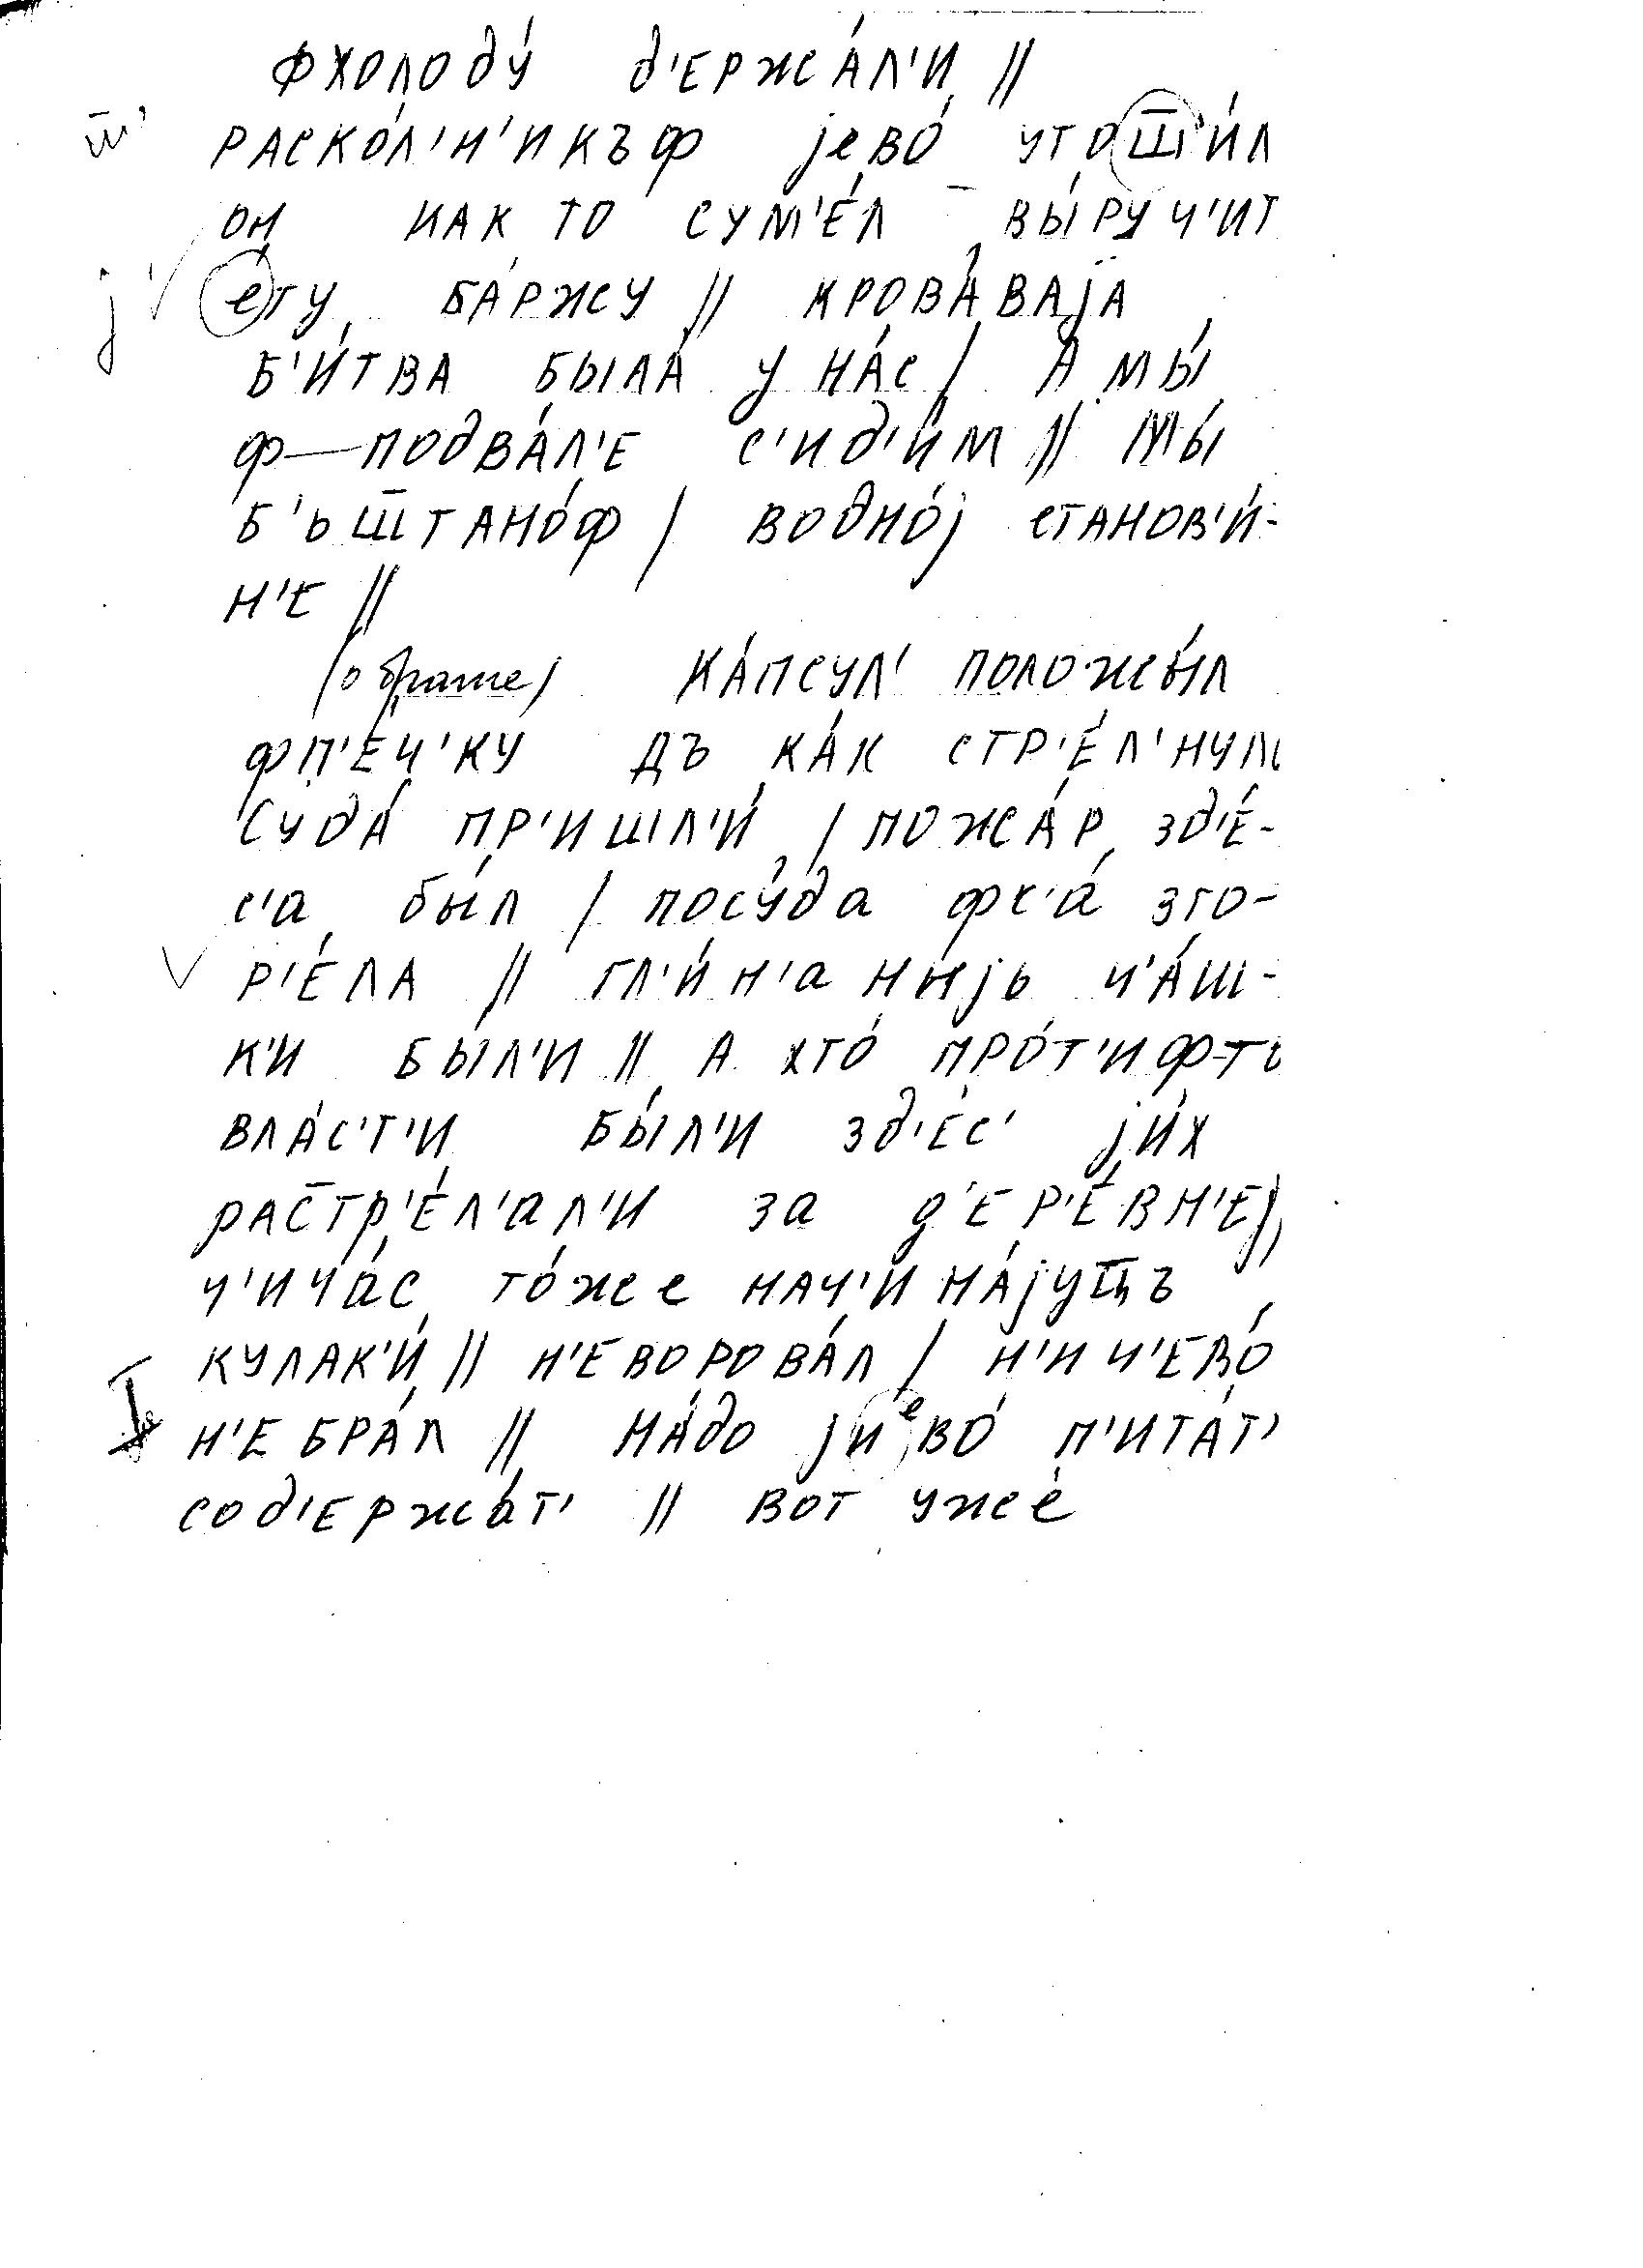 фхолоду́ д'ержа́л'и //
ш̅' раско́л'н'икъф jево́ утош̅'и́л
он как то сум'е́л вы́руч'ит
j е́ту ба́ржу // крова́ваjа
б'и́тва была́ у на́с / а мы́
ф—подва́л'е с'ид'и́м // мы́
б'ьш̅тано́ф / водно́j станов'и́-
н'е //
(о брате) ка́псул' положы́л
фп'е́ч'ку дъ ка́к стр'е́л'нул
с'уда́ пр'ишл'и́ / пожа́р зд'е́-
с'а бы́л / посу́да фс'а́ зго-
р'е́ла // гл'и́н'аныjь ч'а́ш-
к'и бы́л'и // а хто́ про́т'иф-тъ
вла́с'т'и бы́л'и зд'е́с' jи́х
рас̅тр'е́л'ал'и за д'ер'е́вн'еj /
ч'ича́с то́же нач'ина́jут̅цъ
кулак'и́ // н'еворова́л / н'ич'ево́
н'ебра́л // на́до jиево́ п'ита́т'
сод'ержа́т' // вот уже́